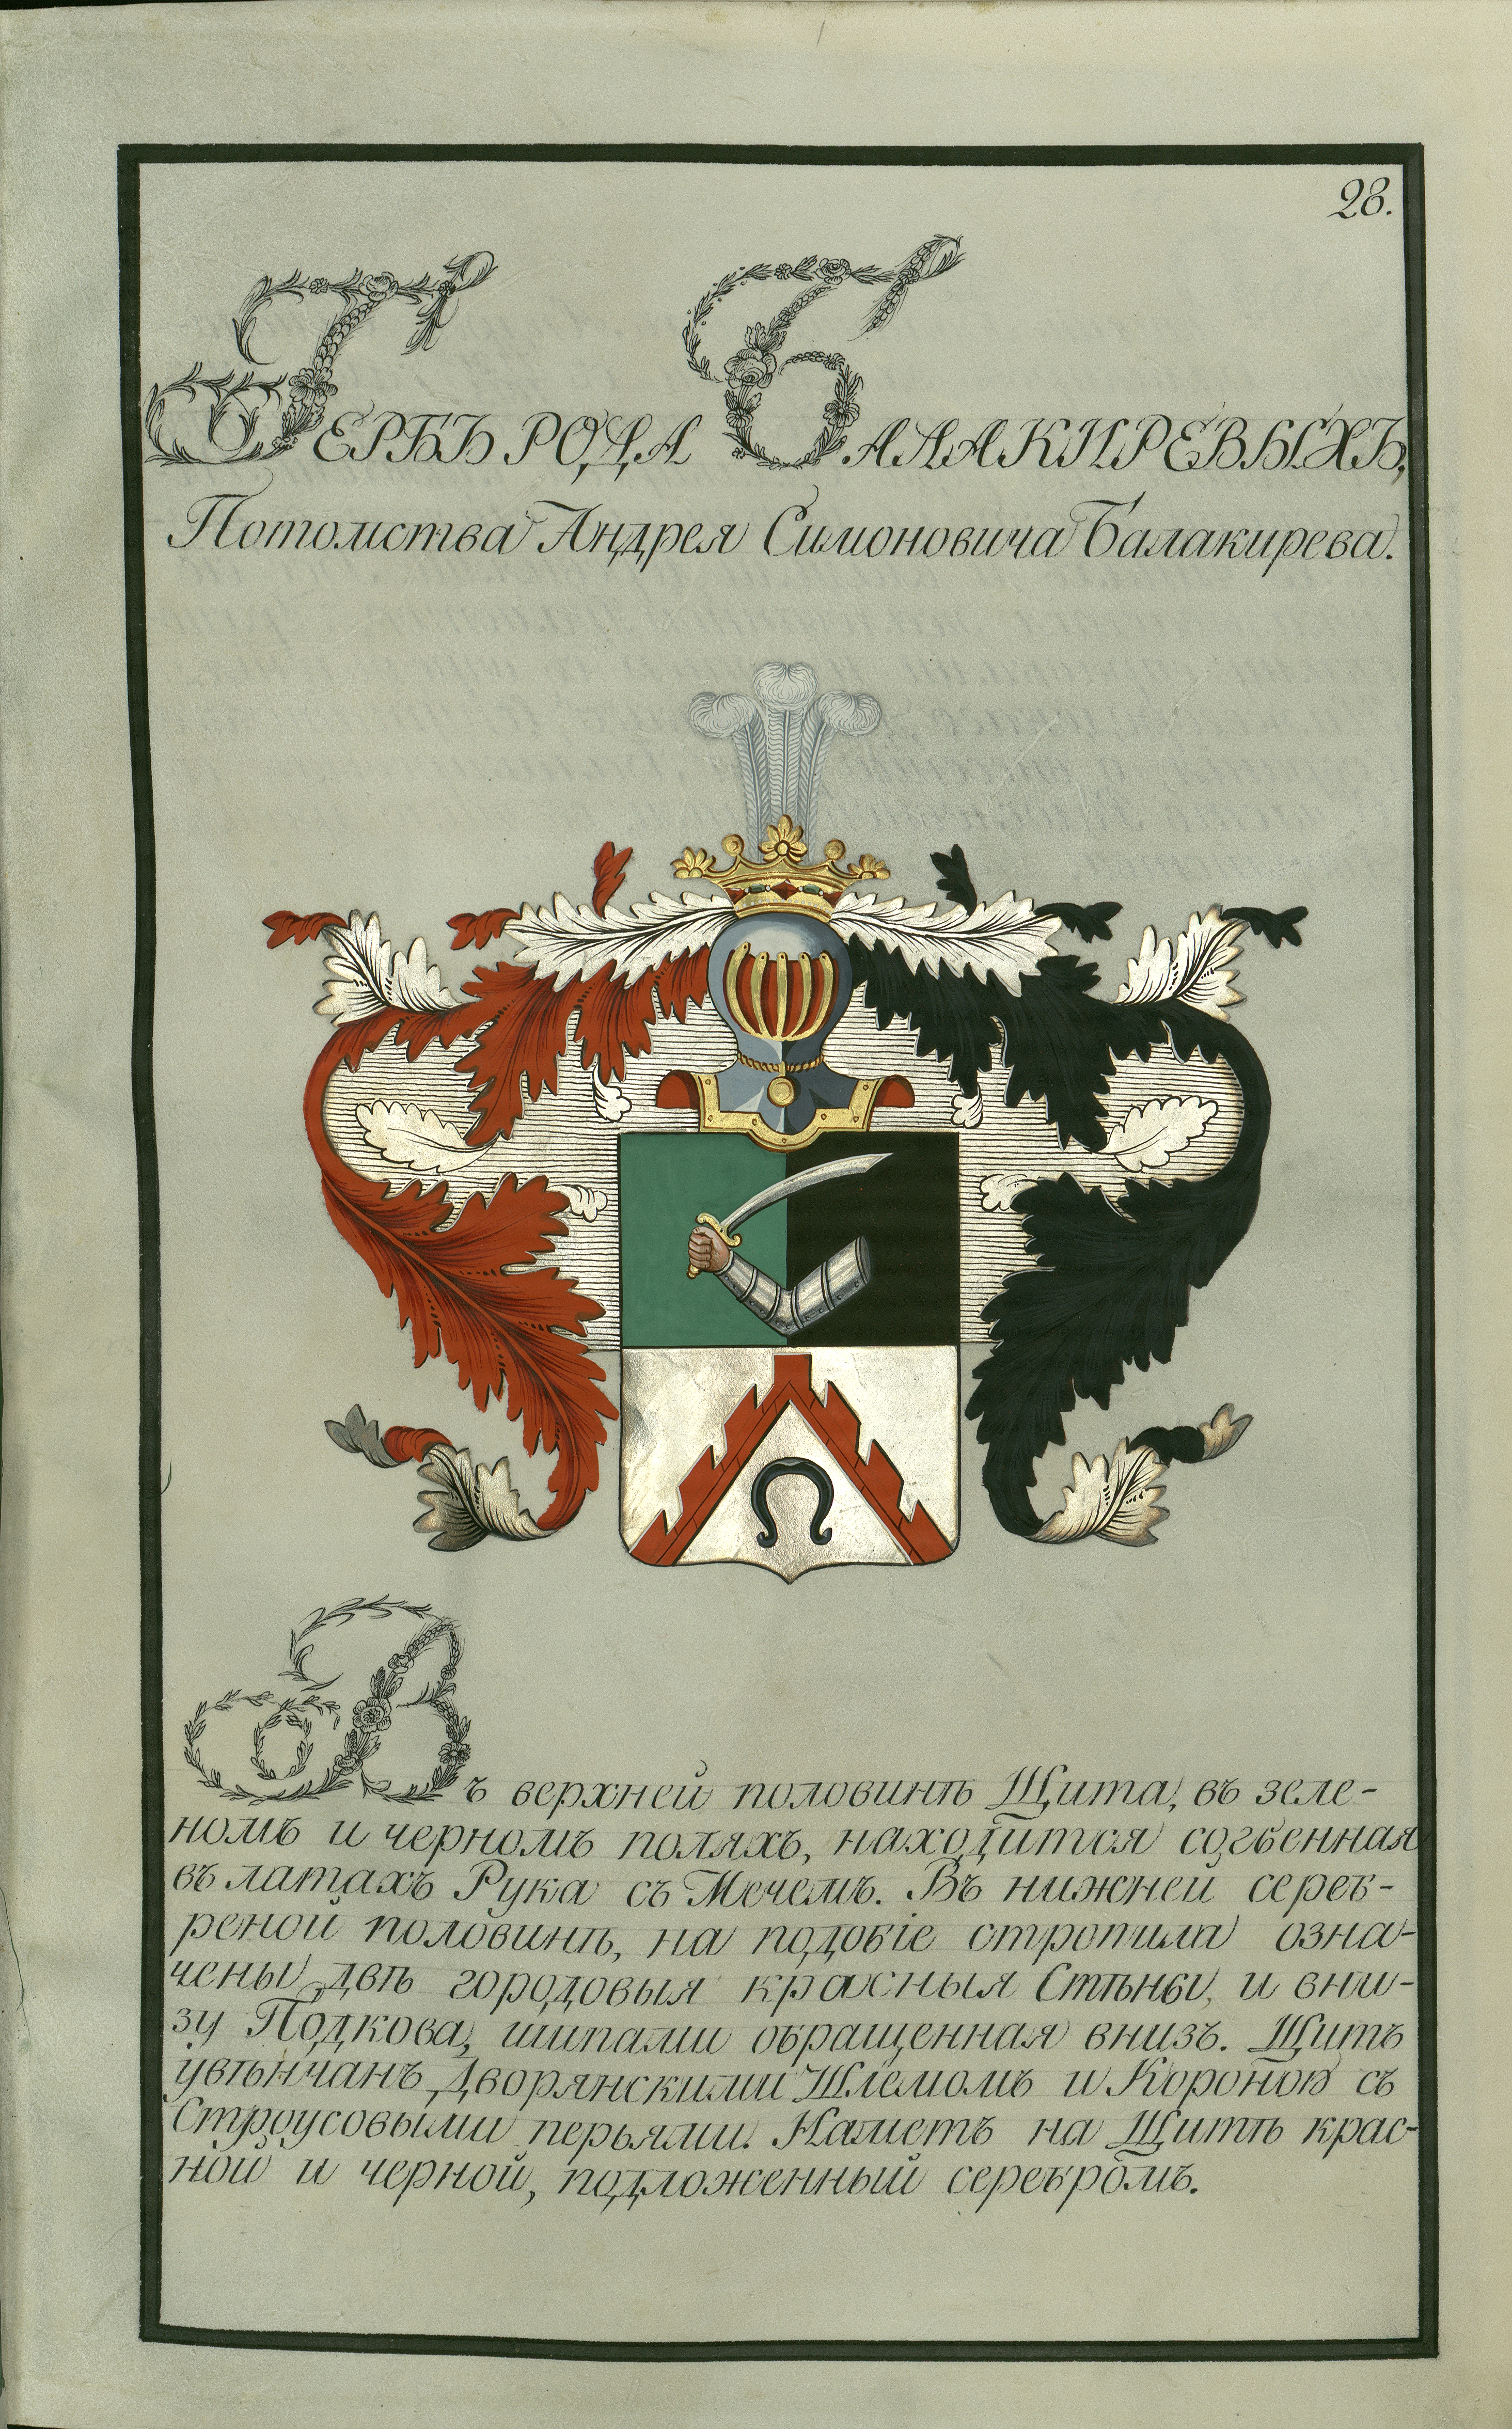 28.
ГЕРБЪ РОДА БАЛАКИРЕВЫХЪ,
Потомства Андрея Симоновича Балакирева.
Въ верхней половинѣ Щита, въ зеле-
номъ и черномъ поляхъ, находится согбенная
въ латахъ Рука съ Мечемъ. Въ нижней сереб-
реной половинѣ, на подобіе стропила озна-
чены двѣ городовыя красныя Стѣны, и вни-
зу Подкова, шипами обращенная внизъ. Щитъ
увѣнчанъ Дворянскими Шлемомъ и Короной съ
Строусовыми перьями. Наметъ на Щитѣ крас-
ной и черной, подложенный серебромъ.